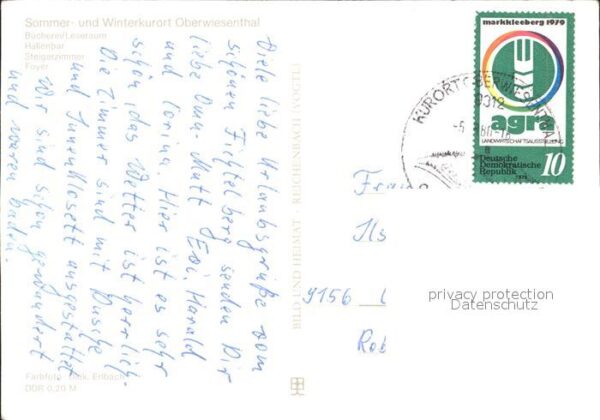 Sommer- und Winterkurort Oberwiesenthal
Bücherei/Leseraum
Hallenbar
Steigerzimmer
Foyer
Viele liebe Urlaubsgrüße vom
schönen Fichtelberg senden Dir
liebe Oma - Mutti Evi, Harald
und Corina. Hier ist es sehr
schön, das Wetter ist herrlich.
Die Zimmer sind mit Dusche
und Innenklosett ausgestattet
Wir sind schon gewandert
und waren baden.
Farbfoto: Erlbach
DDR 0,20 M
BILD UND HEIMAT · REICHENBACH (VOGTL)
markkleeberg 1979
agra
LANDWIRTSCHAFTSAUSSTELLUNG
Deutsche
Demokratische
Republik
1979
10
KURORT OBERWIESENTHAL
9312
Frau
Ils
9156 L
Rob
privacy protection
Datenschutz